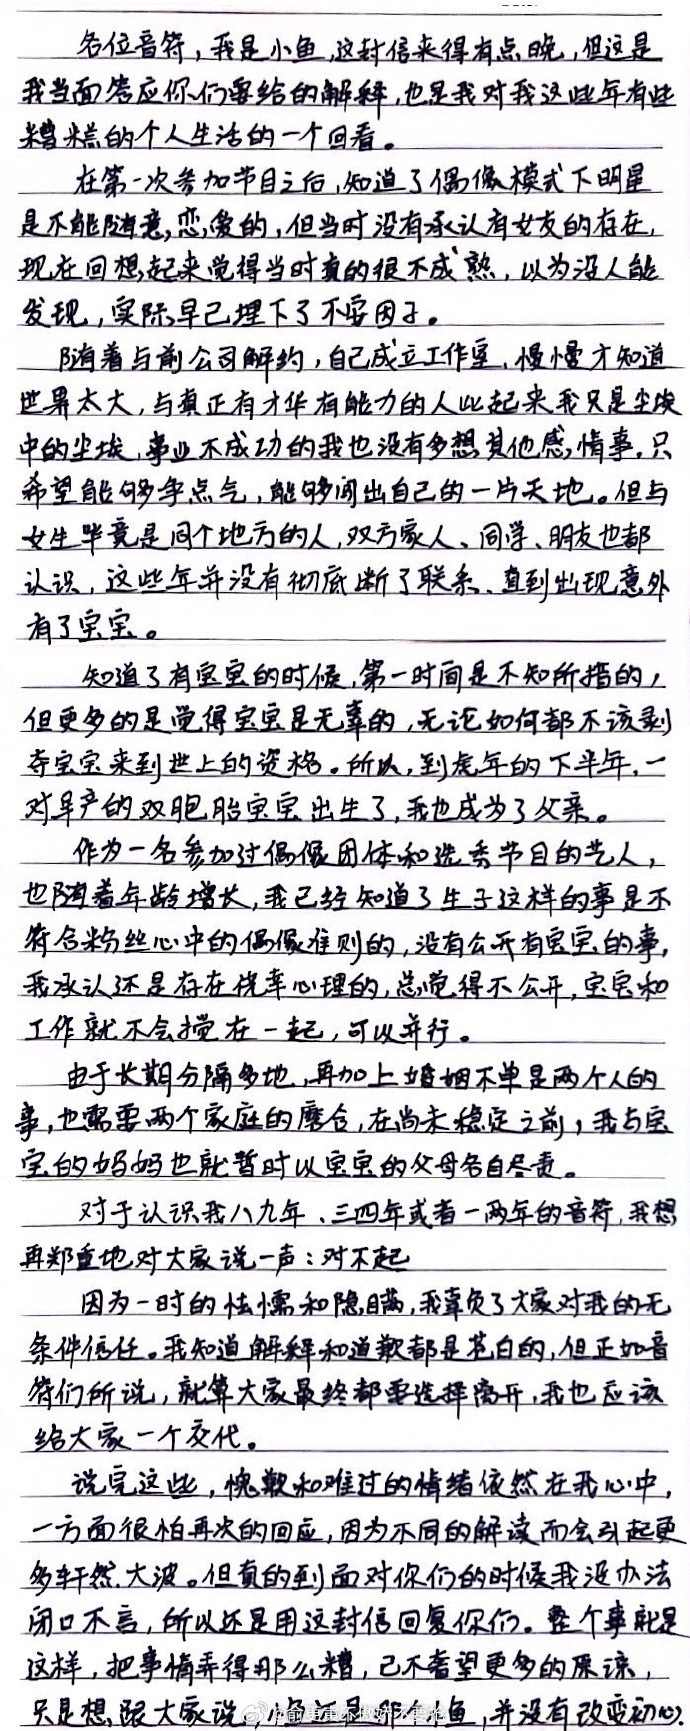 各位音符，我是小鱼，这封信来得有点晚，但这是
我当面答应你们要给的解释，也是我对我这些年有些
糟糕的个人生活的一个回看。
在第一次参加节目之后，知道了偶像模式下明星
是不能随意恋爱的，但当时没有承认有女友的存在，
现在回想起来觉得当时真的很不成熟，以为没人能
发现，实际早已埋下了不安因子。
随着与前公司解约，自己成立工作室，慢慢才知道
世界太大，与真正有才华有能力的人比起来我只是尘埃
中的尘埃，事业不成功的我也没有多想其他感情事，只
希望能够争点气，能够闯出自己的一片天地。但与
女生毕竟是同个地方的人，双方家人、同学、朋友也都
认识，这些年并没有彻底断了联系、直到出现意外
有了宝宝。
知道了有宝宝的时候，第一时间是不知所措的，
但更多的是觉得宝宝是无辜的，无论如何都不该剥
夺宝宝来到世上的资格。所以，到虎年的下半年，一
对早产的双胞胎宝宝出生了，我也成为了父亲。
作为一名参加过偶像团体和选秀节目的艺人，
也随着年龄增长，我已经知道了生子这样的事是不
符合粉丝心中的偶像准则的，没有公开有宝宝的事，
我承认还是存在侥幸心理的，总觉得不公开，宝宝和
工作就不会搅在一起，可以并行。
由于长期分隔多地，再加上婚姻不单是两个人的
事，也需要两个家庭的磨合，在尚未稳定之前，我与宝
宝的妈妈也就暂时以宝宝的父母各自尽责。
对于认识我八九年、三四年或者一两年的音符，我想
再郑重地对大家说一声：对不起
因为一时的怯懦和隐瞒，我辜负了大家对我的无
条件信任。我知道解释和道歉都是苍白的，但正如音
符们所说，就算大家最终都要选择离开，我也应该
给大家一个交代。
说完这些，愧歉和难过的情绪依然在我心中，
一方面很怕再次的回应，因为不同的解读而会引起更
多轩然大波。但真的到面对你们的时候我没办法
闭口不言，所以还是用这封信回复你们。整个事就是
这样，把事情弄得那么糟，已不奢望更多的原谅，
只是想跟大家说，还是那小鱼，并没有改变初心